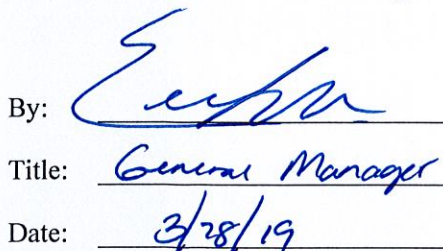 By:
Title: General Manager
Date: 3/28/19